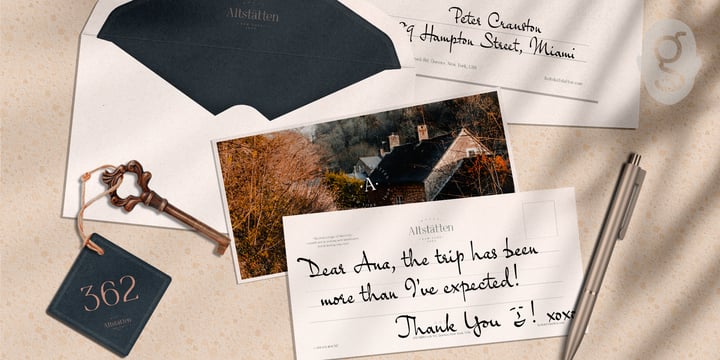 Altstätten
NEW YORK
Peter Cranston
29 Hampton Street, Miami
New York, USA
A
Altstätten
NEW YORK
Dear Ana, the trip has been
more than I've expected!
Thank You ! xoxo
362
Altstätten